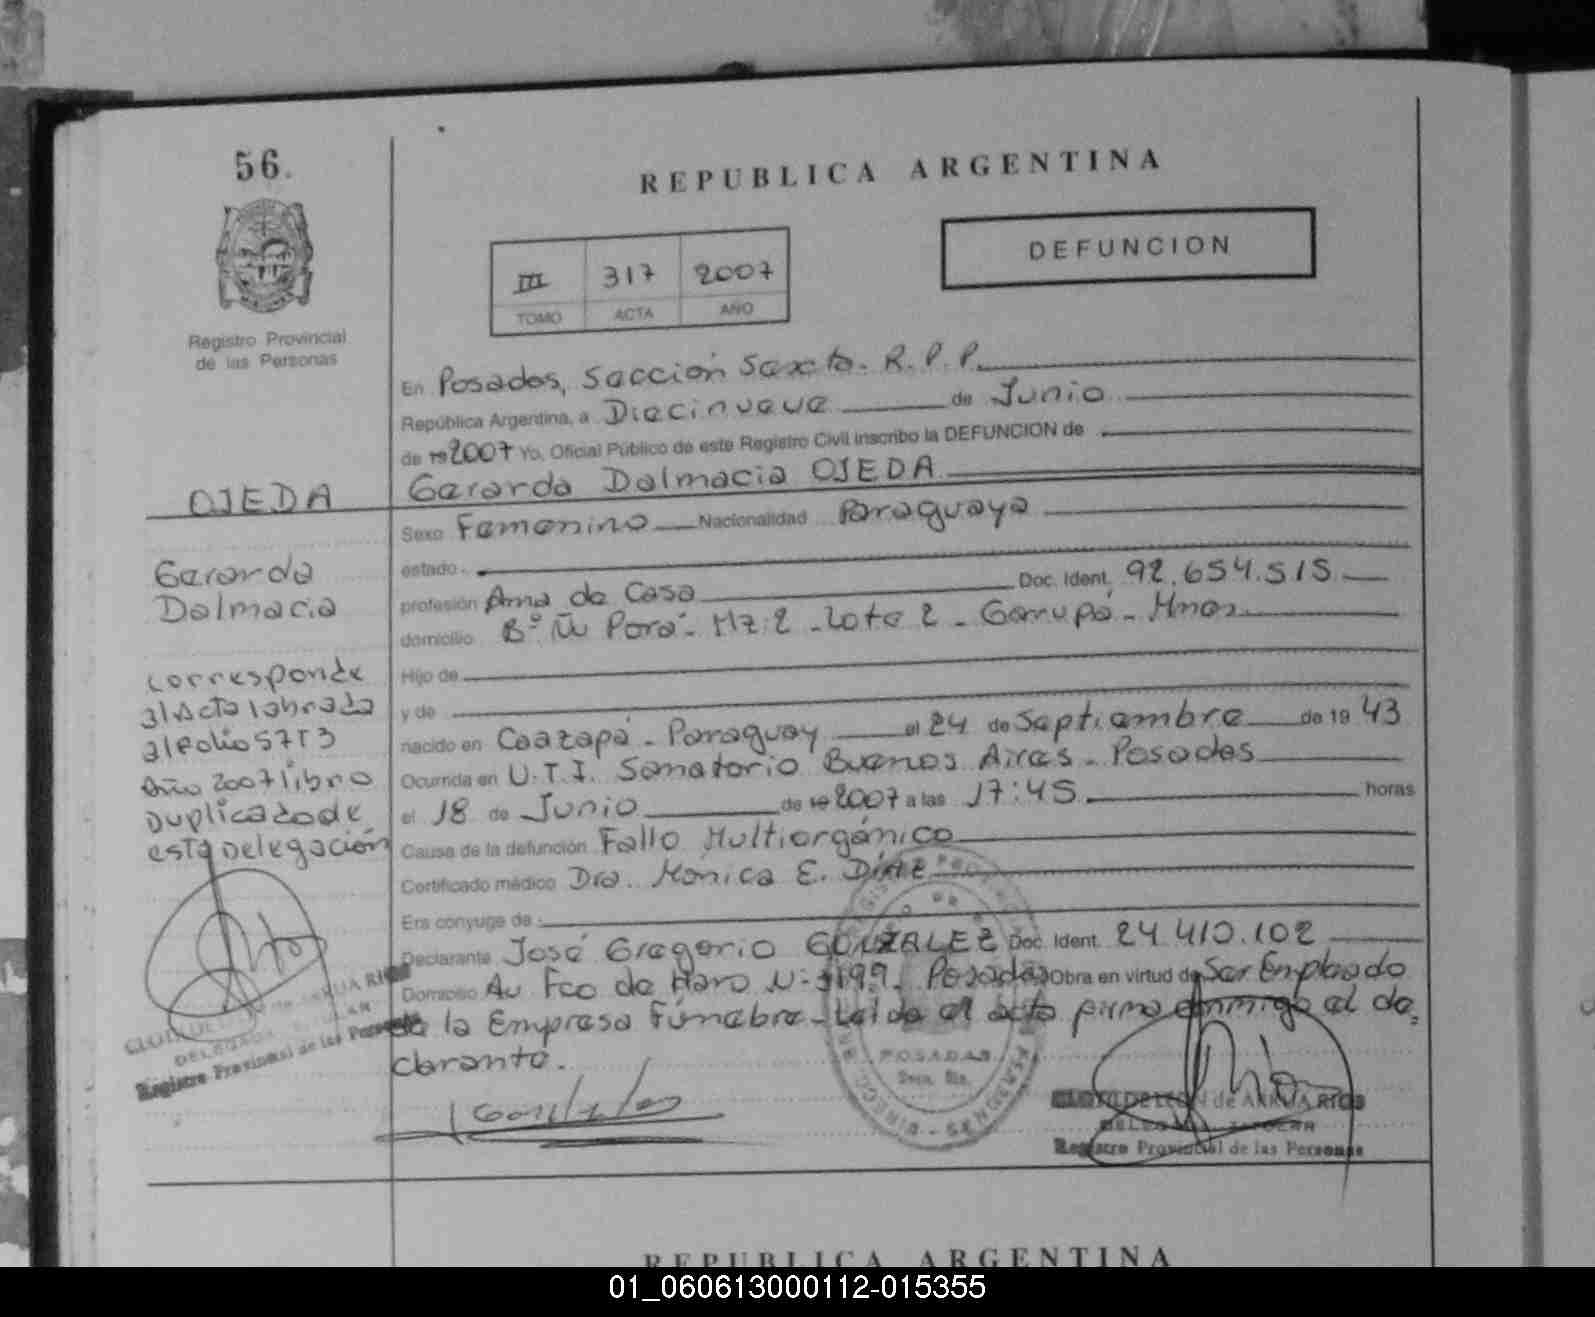 56.
REPUBLICA ARGENTINA
DEFUNCION
III 317 2007
TOMO ACTA AÑO
Registro Provincial
de las Personas
En Posadas, Sección Sexta. R.P.P.
República Argentina, a Diecinueve de Junio
de 19 2007 Yo, Oficial Público de este Registro Civil inscribo la DEFUNCION de
OJEDA
Gerarda Dalmacia OJEDA
Sexo Femenino Nacionalidad Paraguaya
Gerarda
Dalmacia
estado
profesión Ama de Casa Doc. Ident. 92.654.515.
domicilio Bº Ñu Porá - Mz: 2 - Lote 2 - Garupá - Mnes
corresponde
al Acta labrada
al folio 57 T3
Año 2007 libro
Duplicado de
esta Delegación
Hijo de
y de
nacido en Caazapá - Paraguay el 24 de Septiembre de 19 43
Ocurrida en U.T.I. Sanatorio Buenos Aires - Posadas
el 18 de Junio de 19 2007 a las 17:45 horas
Causa de la defunción Fallo Multiorgánico
Certificado médico Dra. Mónica E. Díaz
Era conyuge de
Declarante José Gregorio GONZALEZ Doc. Ident. 24.410.102
Domicilio Av Fco de Haro Posadas Obra en virtud de Ser Empleado
de la Empresa Fúnebre - Leída el acta firma conmigo el de
clarante.
POSADAS
Registro Provincial de las Personas
de ARRUA RIOS
DELEGADA TITULAR
Registro Provincial de las Personas
REPUBLICA ARGENTINA
01_060613000112-015355